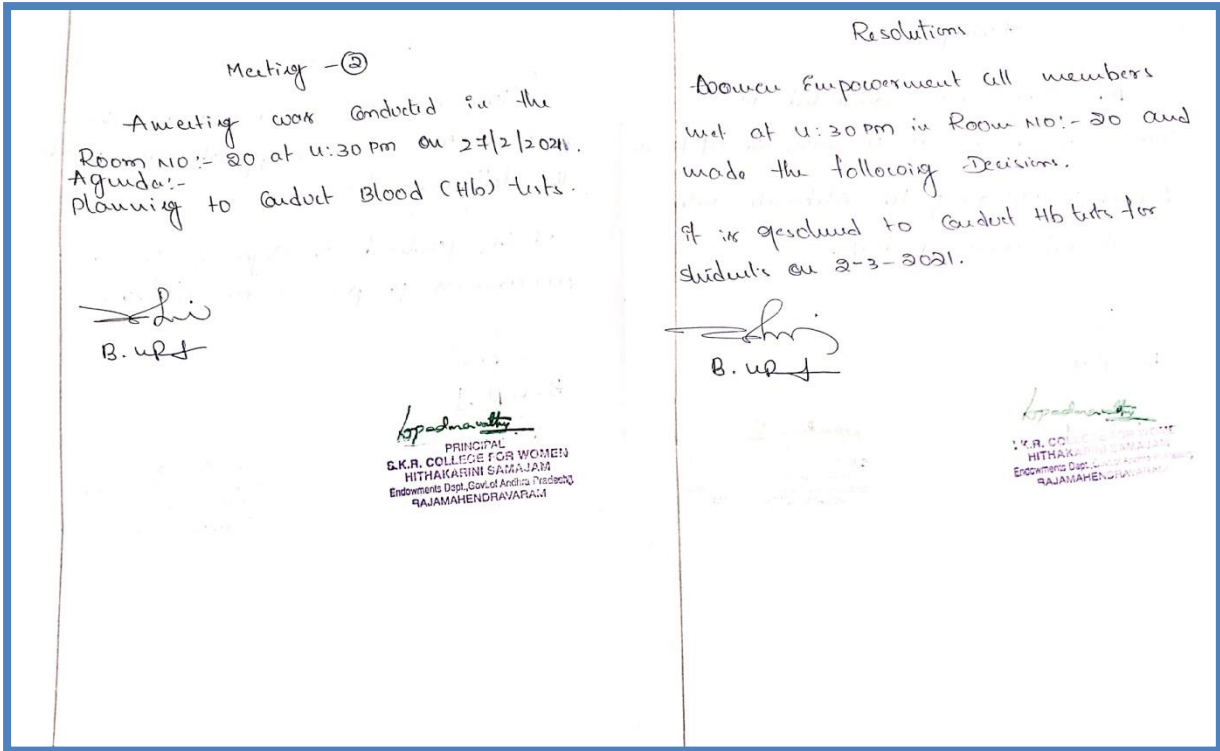 Meeting - ②
A meeting was Conducted in the
Room NO:- 20 at 4:30 pm on 27/2/2021.
Agenda:-
Planning to Conduct Blood (Hb) tests.
B.
PRINCIPAL
S.K.R. COLLEGE FOR WOMEN
HITHAKARINI SAMAJAM
Endowments Dept.,Govt.of Andhra Pradesh,
RAJAMAHENDRAVARAM
Resolutions
Women Empowerment all members
met at 4:30 pm in Room NO:- 20 and
made the following Decisions.
it is resolved to Conduct Hb tests for
students on 2-3-2021.
B.
HITHAKARINI SAMAJAM
Endowments Dept.
RAJAMAHENDRAVARAM